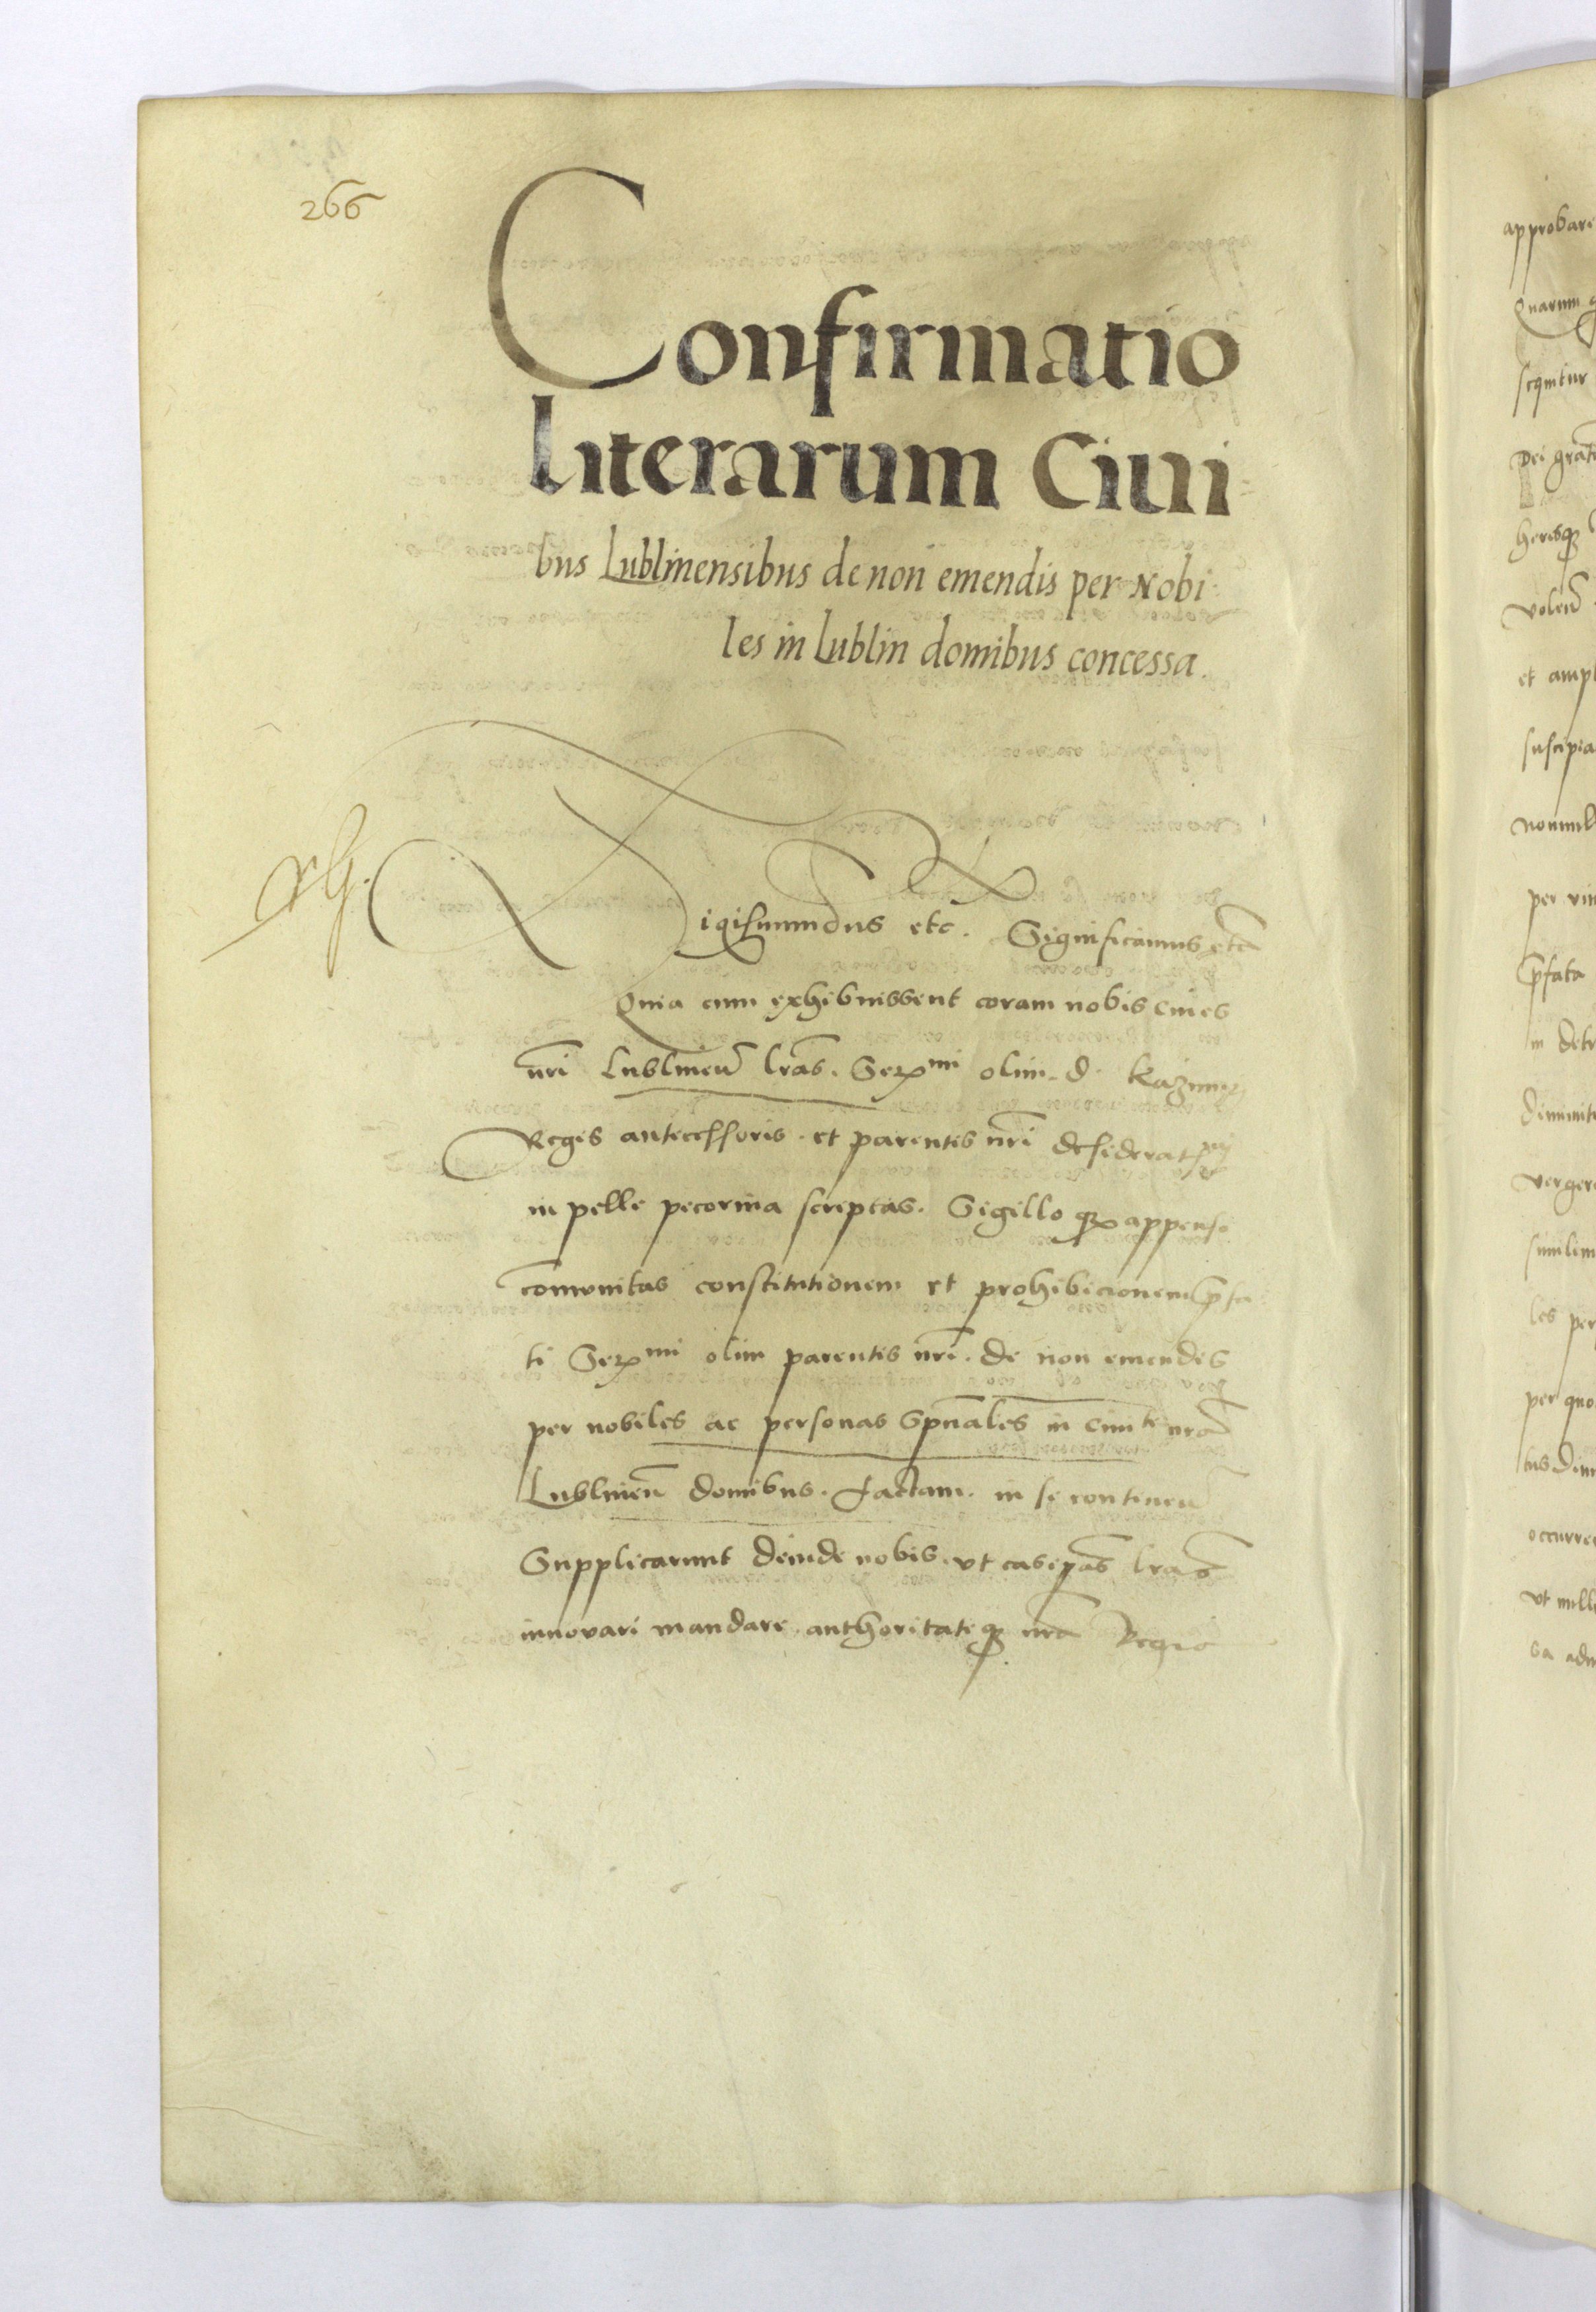 266
Confirmatio
literarum Ciui
bus Lublinensibus de non emendis per Nobi
les in Lublin domibus concessa.
Sigismundus etc. Significamus etc
Quia cum exhibuissent coram nobis ciues
nri Lublinen lras. Sermi olim d. Kazimiri
Regis antecessoris et parentis nri desideratmi
in pelle pecorina scriptas. Sigillo que appenso
comunitas constitutionem et prohibicionem prefa
ti Sermi olim parentis nri. de non emendis
per nobiles ac personas spuales in ciuitte nra
Lublinen domibus. factam. in se continen
Supplicarunt deinde nobis. vt easepas lras
innovari mandare authoritateque nra Regia
approbare
Quarum
sequitur
Dei grati
heresque
volen
et ampl
suscipia
per vim
prefata
in detr
diminut
verger
les per
per quo
occurre
vt null